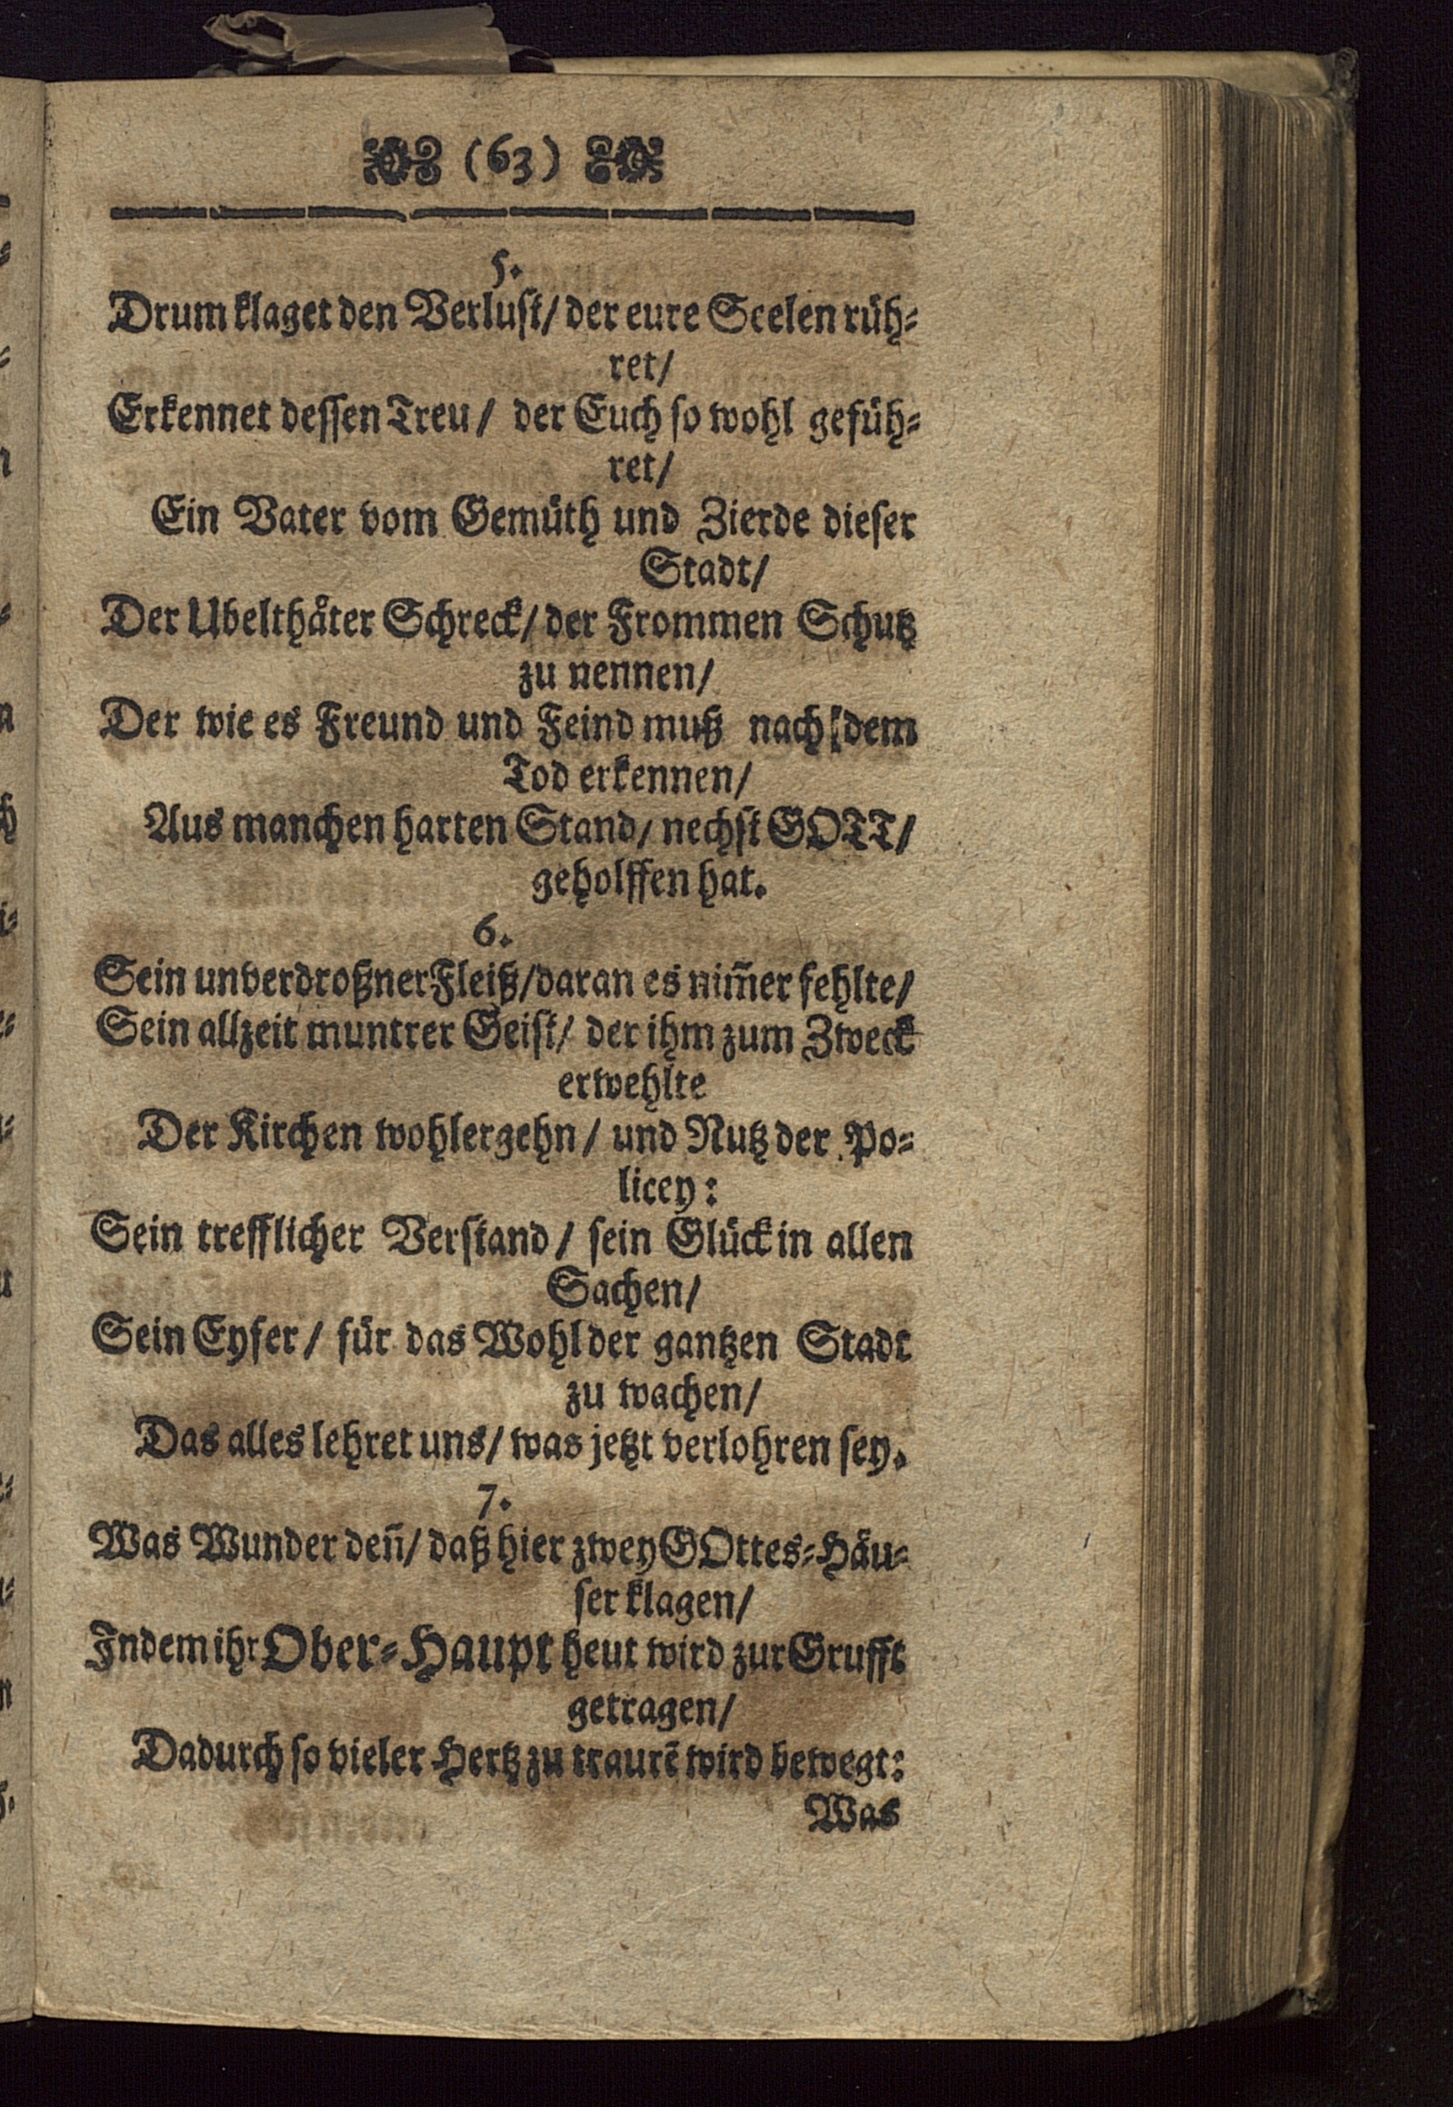 (63)
5.
Drum klaget den Verlust/ der eure Seelen rüh-
ret/
Erkennet dessen Treu/ der Euch so wohl gefüh-
ret/
Ein Vater vom Gemüth und Zierde dieser
Stadt/
Der Ubelthäter Schreck/ der Frommen Schutz
zu nennen/
Der wie es Freund und Feind muß nach dem
Tod erkennen/
Aus manchen harten Stand/ nechst GOTT/
geholffen hat.
6.
Sein unverdroßner Fleiß/ daran es nim̃er fehlte/
Sein allzeit muntrer Geist/ der ihm zum Zweck
erwehlte
Der Kirchen wohlergehn/ und Nutz der Po-
licey:
Sein trefflicher Verstand/ sein Glück in allen
Sachen/
Sein Eyfer/ für das Wohl der gantzen Stadt
zu wachen/
Das alles lehret uns/ was jetzt verlohren sey.
7.
Was Wunder deñ/ daß hier zwey GOttes-Häu-
ser klagen/
Indem ihr Ober-Haupt heut wird zur Grufft
getragen/
Dadurch so vieler Hertz zu traurẽ wird bewegt:
Was